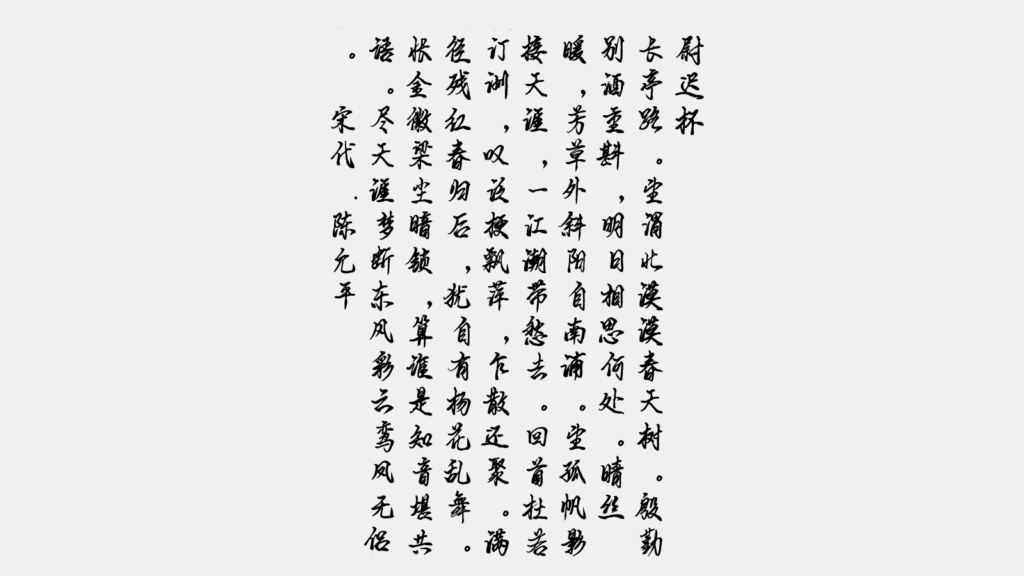 尉迟杯
长亭路。望渭北漠漠春天树。殷勤
别酒重斟，明日相思何处。晴丝
暖，芳草外斜阳自南浦。望孤帆影
接天涯，一江潮带愁去。回首杜若
汀洲，叹泛梗飘萍，乍散还聚。满
径残红春归后，犹自有杨花乱舞。
怅金徽梁尘暗锁，算谁是知音堪共
语。尽天涯梦断东风彩云鸾凤无侣
。宋代.陈允平